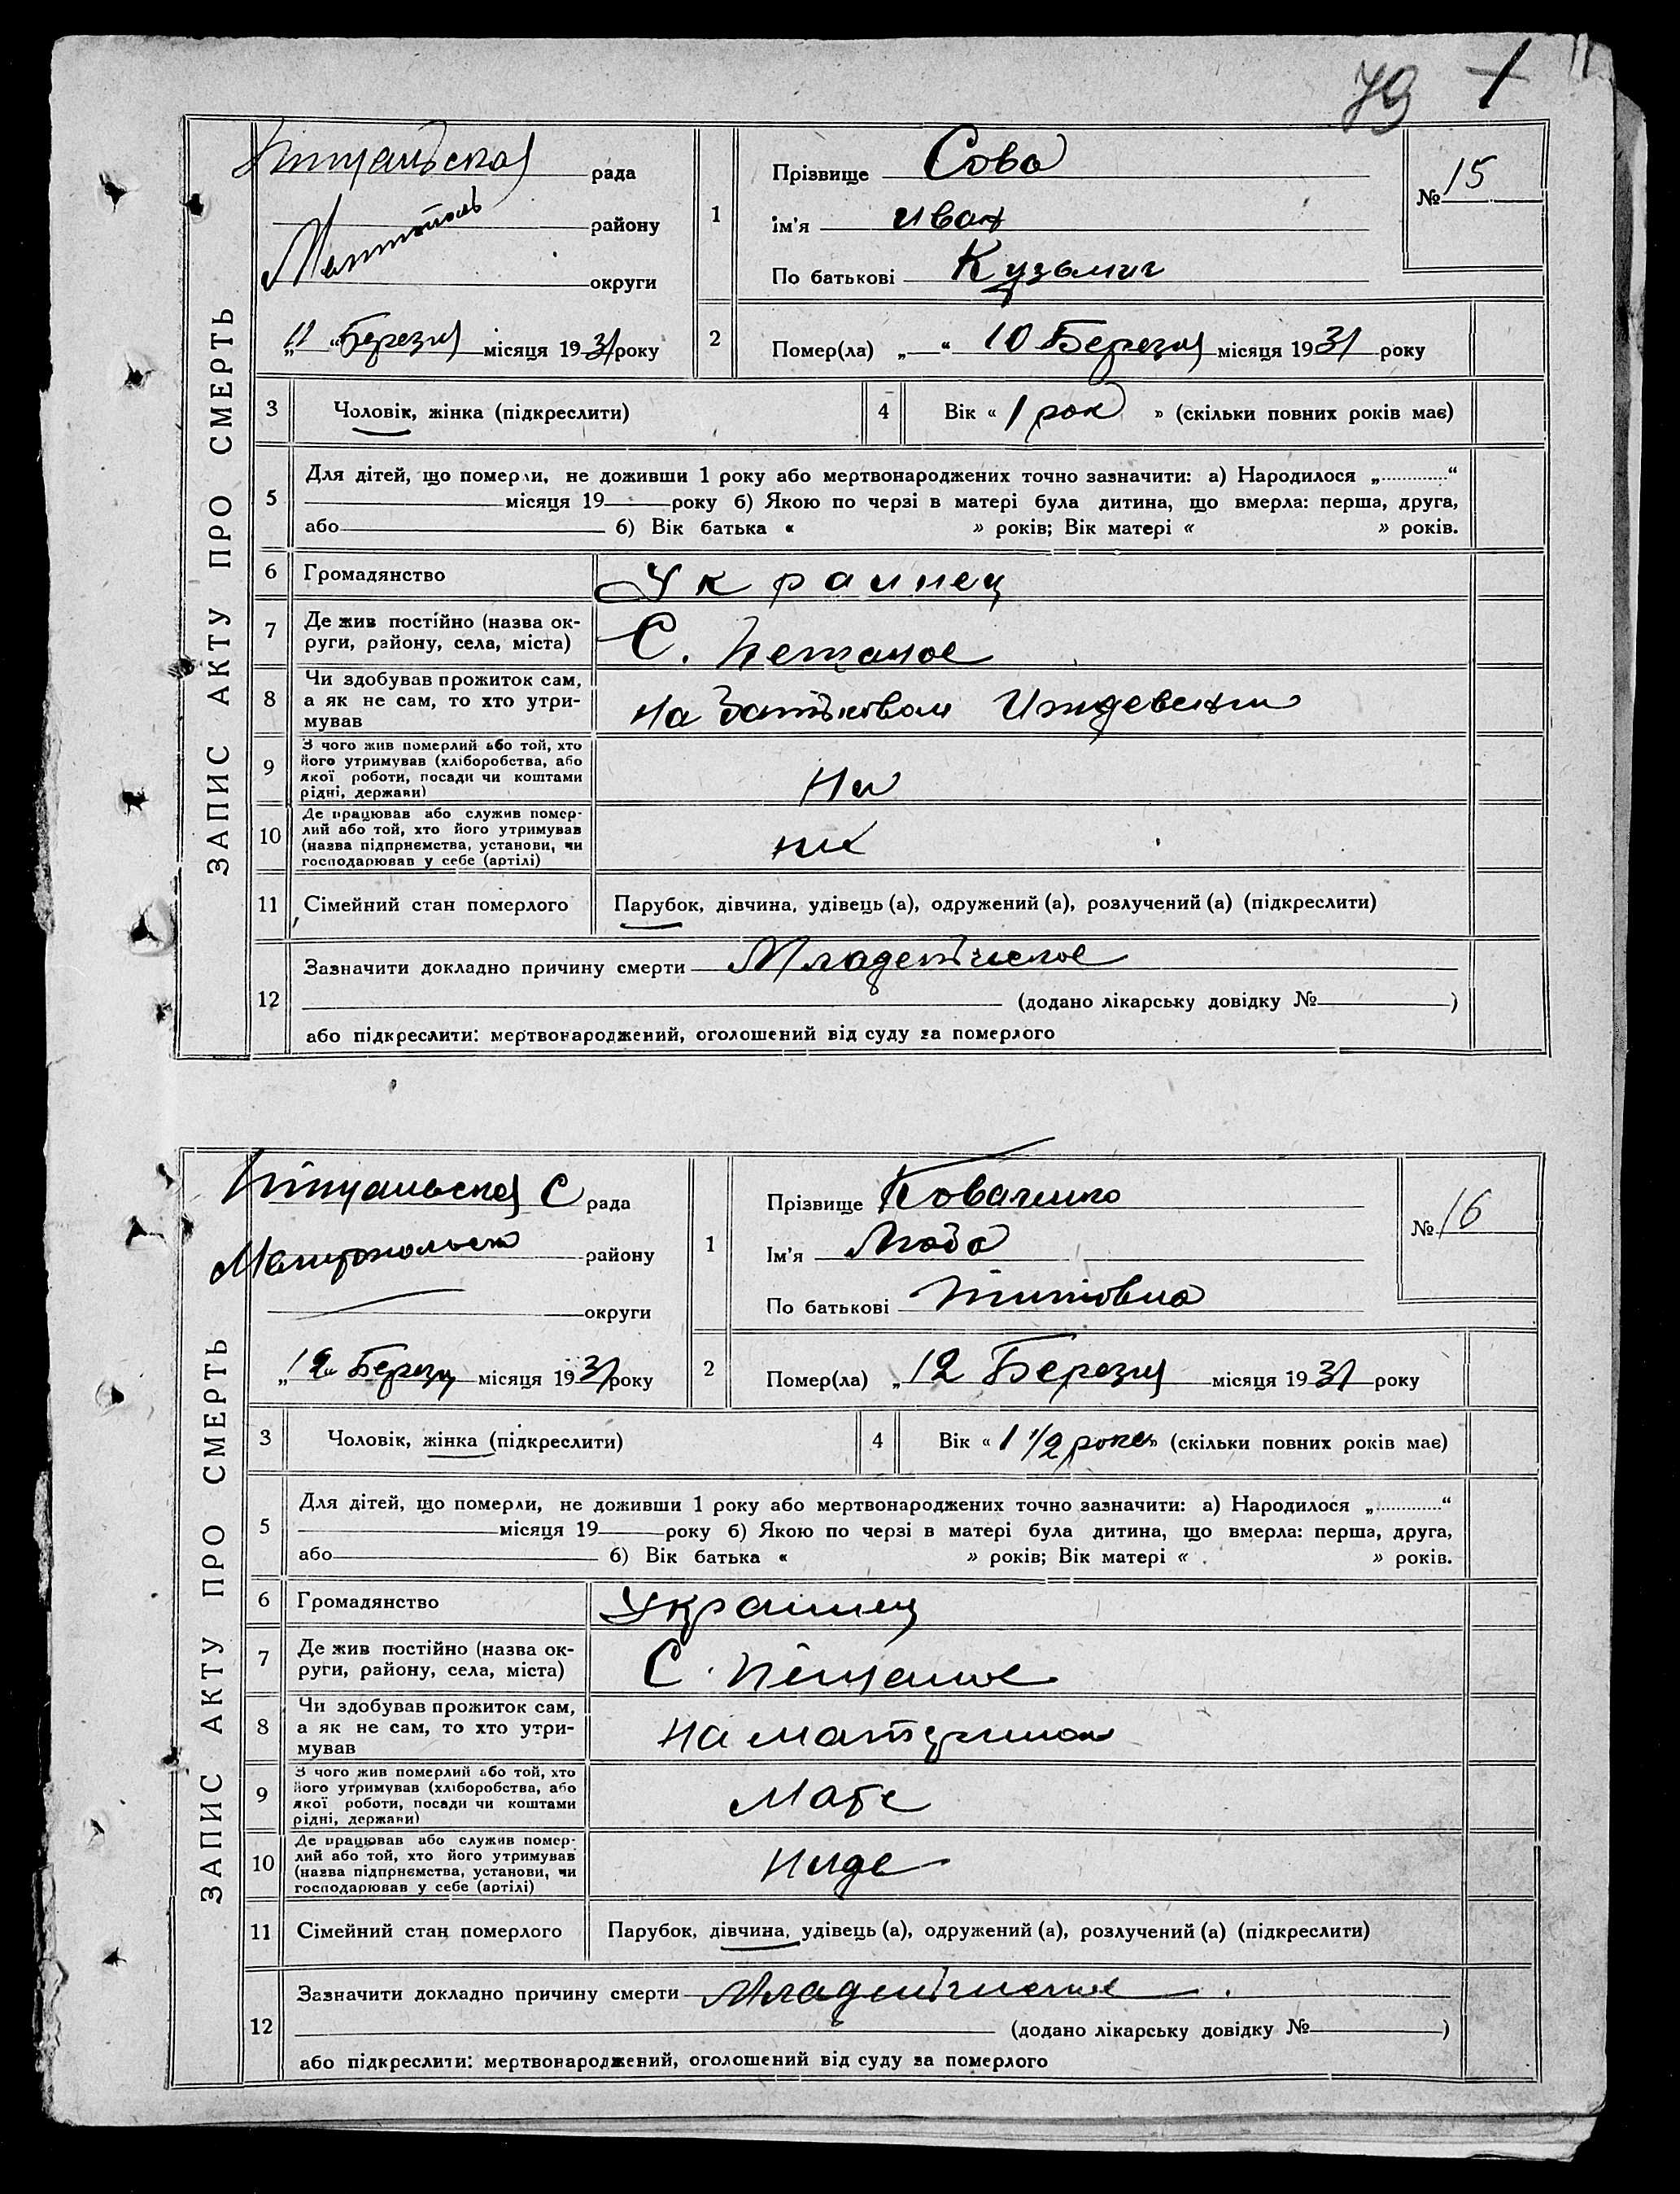 79 1
ЗАПИС АКТУ ПРО СМЕРТЬ
рада
району
округи
„11“ Березня місяця 1931 року
1
Прізвище Сова
ім'я Иван
По батькові Кузьмич
№ 15
2
Помер(ла) „ “ 10 Березня місяця 1931 року
3 Чоловік, жінка (підкреслити)
4 Вік « 1 рок » (скільки повних років має)
5
Для дітей, що померли, не доживши 1 року або мертвонароджених точно зазначити: а) Народилося „............“
місяця 19 року б) Якою по черзі в матері була дитина, що вмерла: перша, друга,
або б) Вік батька « » років; Вік матері « » років.
6 Громадянство Украинец
7 Де жив постійно (назва ок-
руги, району, села, міста) С. Песчаное
8 Чи здобував прожиток сам,
а як не сам, то хто утри-
мував
на Иждевении
9 З чого жив померлий або той, хто
його утримував (хліборобства, або
якої роботи, посади чи коштами
рідні, держави)
10 Де працював або служив помер-
лий або той, хто його утримував
(назва підприємства, установи, чи
господарював у себе (артілі)
11 Сімейний стан померлого Парубок, дівчина, удівець (а), одружений (а), розлучений (а) (підкреслити)
12 Зазначити докладно причину смерти Младенческое
(додано лікарську довідку № )
або підкреслити: мертвонароджений, оголошений від суду за померлого
ЗАПИС АКТУ ПРО СМЕРТЬ
С рада
району
округи
„12“ Березня місяця 1931 року
1
Прізвище
Ім'я Люба
По батькові Титовна
№ 16
2
Помер(ла) „12 Березня місяця 1931 року
3 Чоловік, жінка (підкреслити)
4 Вік « 1 1/2 рока » (скільки повних років має)
5
Для дітей, що померли, не доживши 1 року або мертвонароджених точно зазначити: а) Народилося „............“
місяця 19 року б) Якою по черзі в матері була дитина, що вмерла: перша, друга,
або б) Вік батька « » років; Вік матері « » років.
6 Громадянство Украинец
7 Де жив постійно (назва ок-
руги, району, села, міста) С. Песчаное
8 Чи здобував прожиток сам,
а як не сам, то хто утри-
мував
на материном
9 З чого жив померлий або той, хто
його утримував (хліборобства, або
якої роботи, посади чи коштами
рідні, держави)
10 Де працював або служив помер-
лий або той, хто його утримував
(назва підприємства, установи, чи
господарював у себе (артілі)
нигде
11 Сімейний стан померлого Парубок, дівчина, удівець (а), одружений (а), розлучений (а) (підкреслити)
12 Зазначити докладно причину смерти Младенческое
(додано лікарську довідку № )
або підкреслити: мертвонароджений, оголошений від суду за померлого